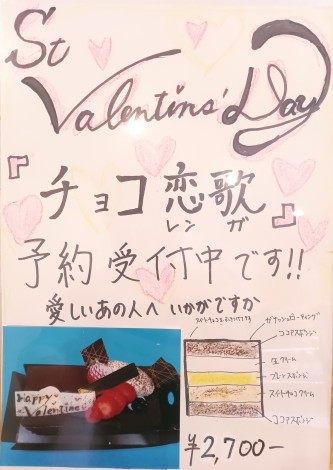 St
Valentins' Day
『チョコ恋歌』
レンガ
予約受付中です!!
愛しいあの人へ いかがですか
ガナッシュコーティング
ココアスポンジ
生クリーム
プレーンスポンジ
スイートチョコクリーム
ココアスポンジ
Happy
Valentine
¥2,700-